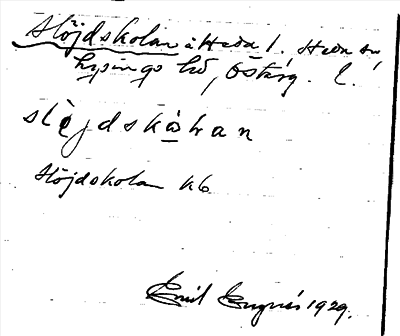 Slöjdskolan i Heda l. Heda sn
Lysings hd, Östg. L.
slèjdskå̱lan
Slöjdskolan kb
Emil 1929.